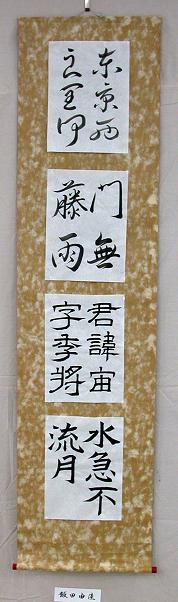 東京
門無
藤雨
君諱宙
字季將
水急不
流月
飯田由